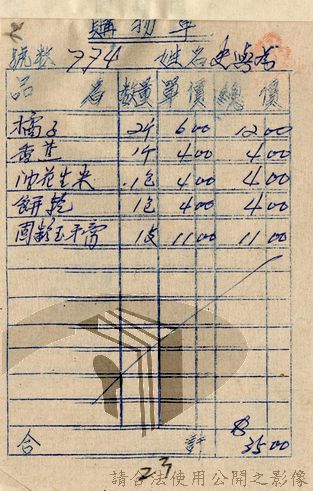 購物單
號数 774 姓名 史與為
品名 数量 單價 總價
橘子 2斤 600 1200
香蕉 1斤 400 400
帅花生米 1包 400 400
餅乾 1包 400 400
固齡玉牙膏 1支 1100 1100
合計 3500
23
請合法使用公開之影像